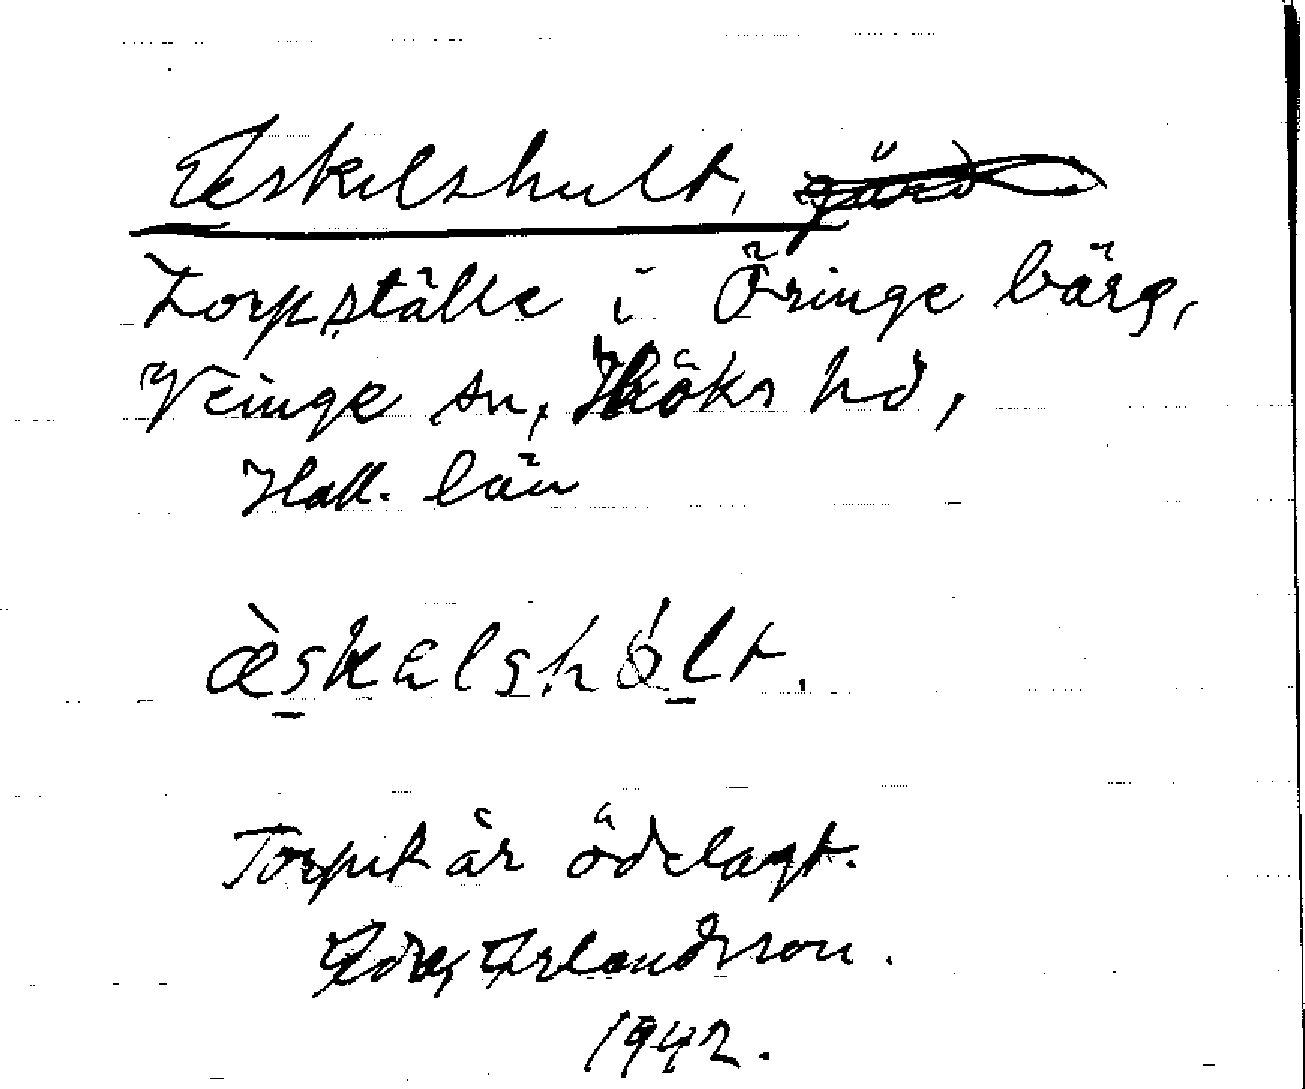 Eskilshult, gård
Torpställe i Öringe bärg,
Veinge sn, Höks hd,
Hall. län
æ̀skəlshólt.
Torpet är ödelagt.
Erlandsson.
1942.